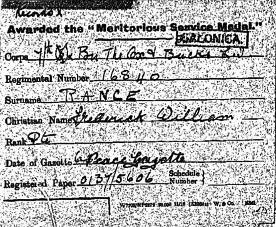 Records X
Awarded the "Meritorious Service Medal."
SALONICA.
Corps 7th (S) Bn The Ox & Bucks L.I.
Regimental Number 16840
Surname RANCE
Christian Name Frederick William
Rank Pte
Date of Gazette Peace Gazette
Registered Paper 0137/5606 Schedule Number